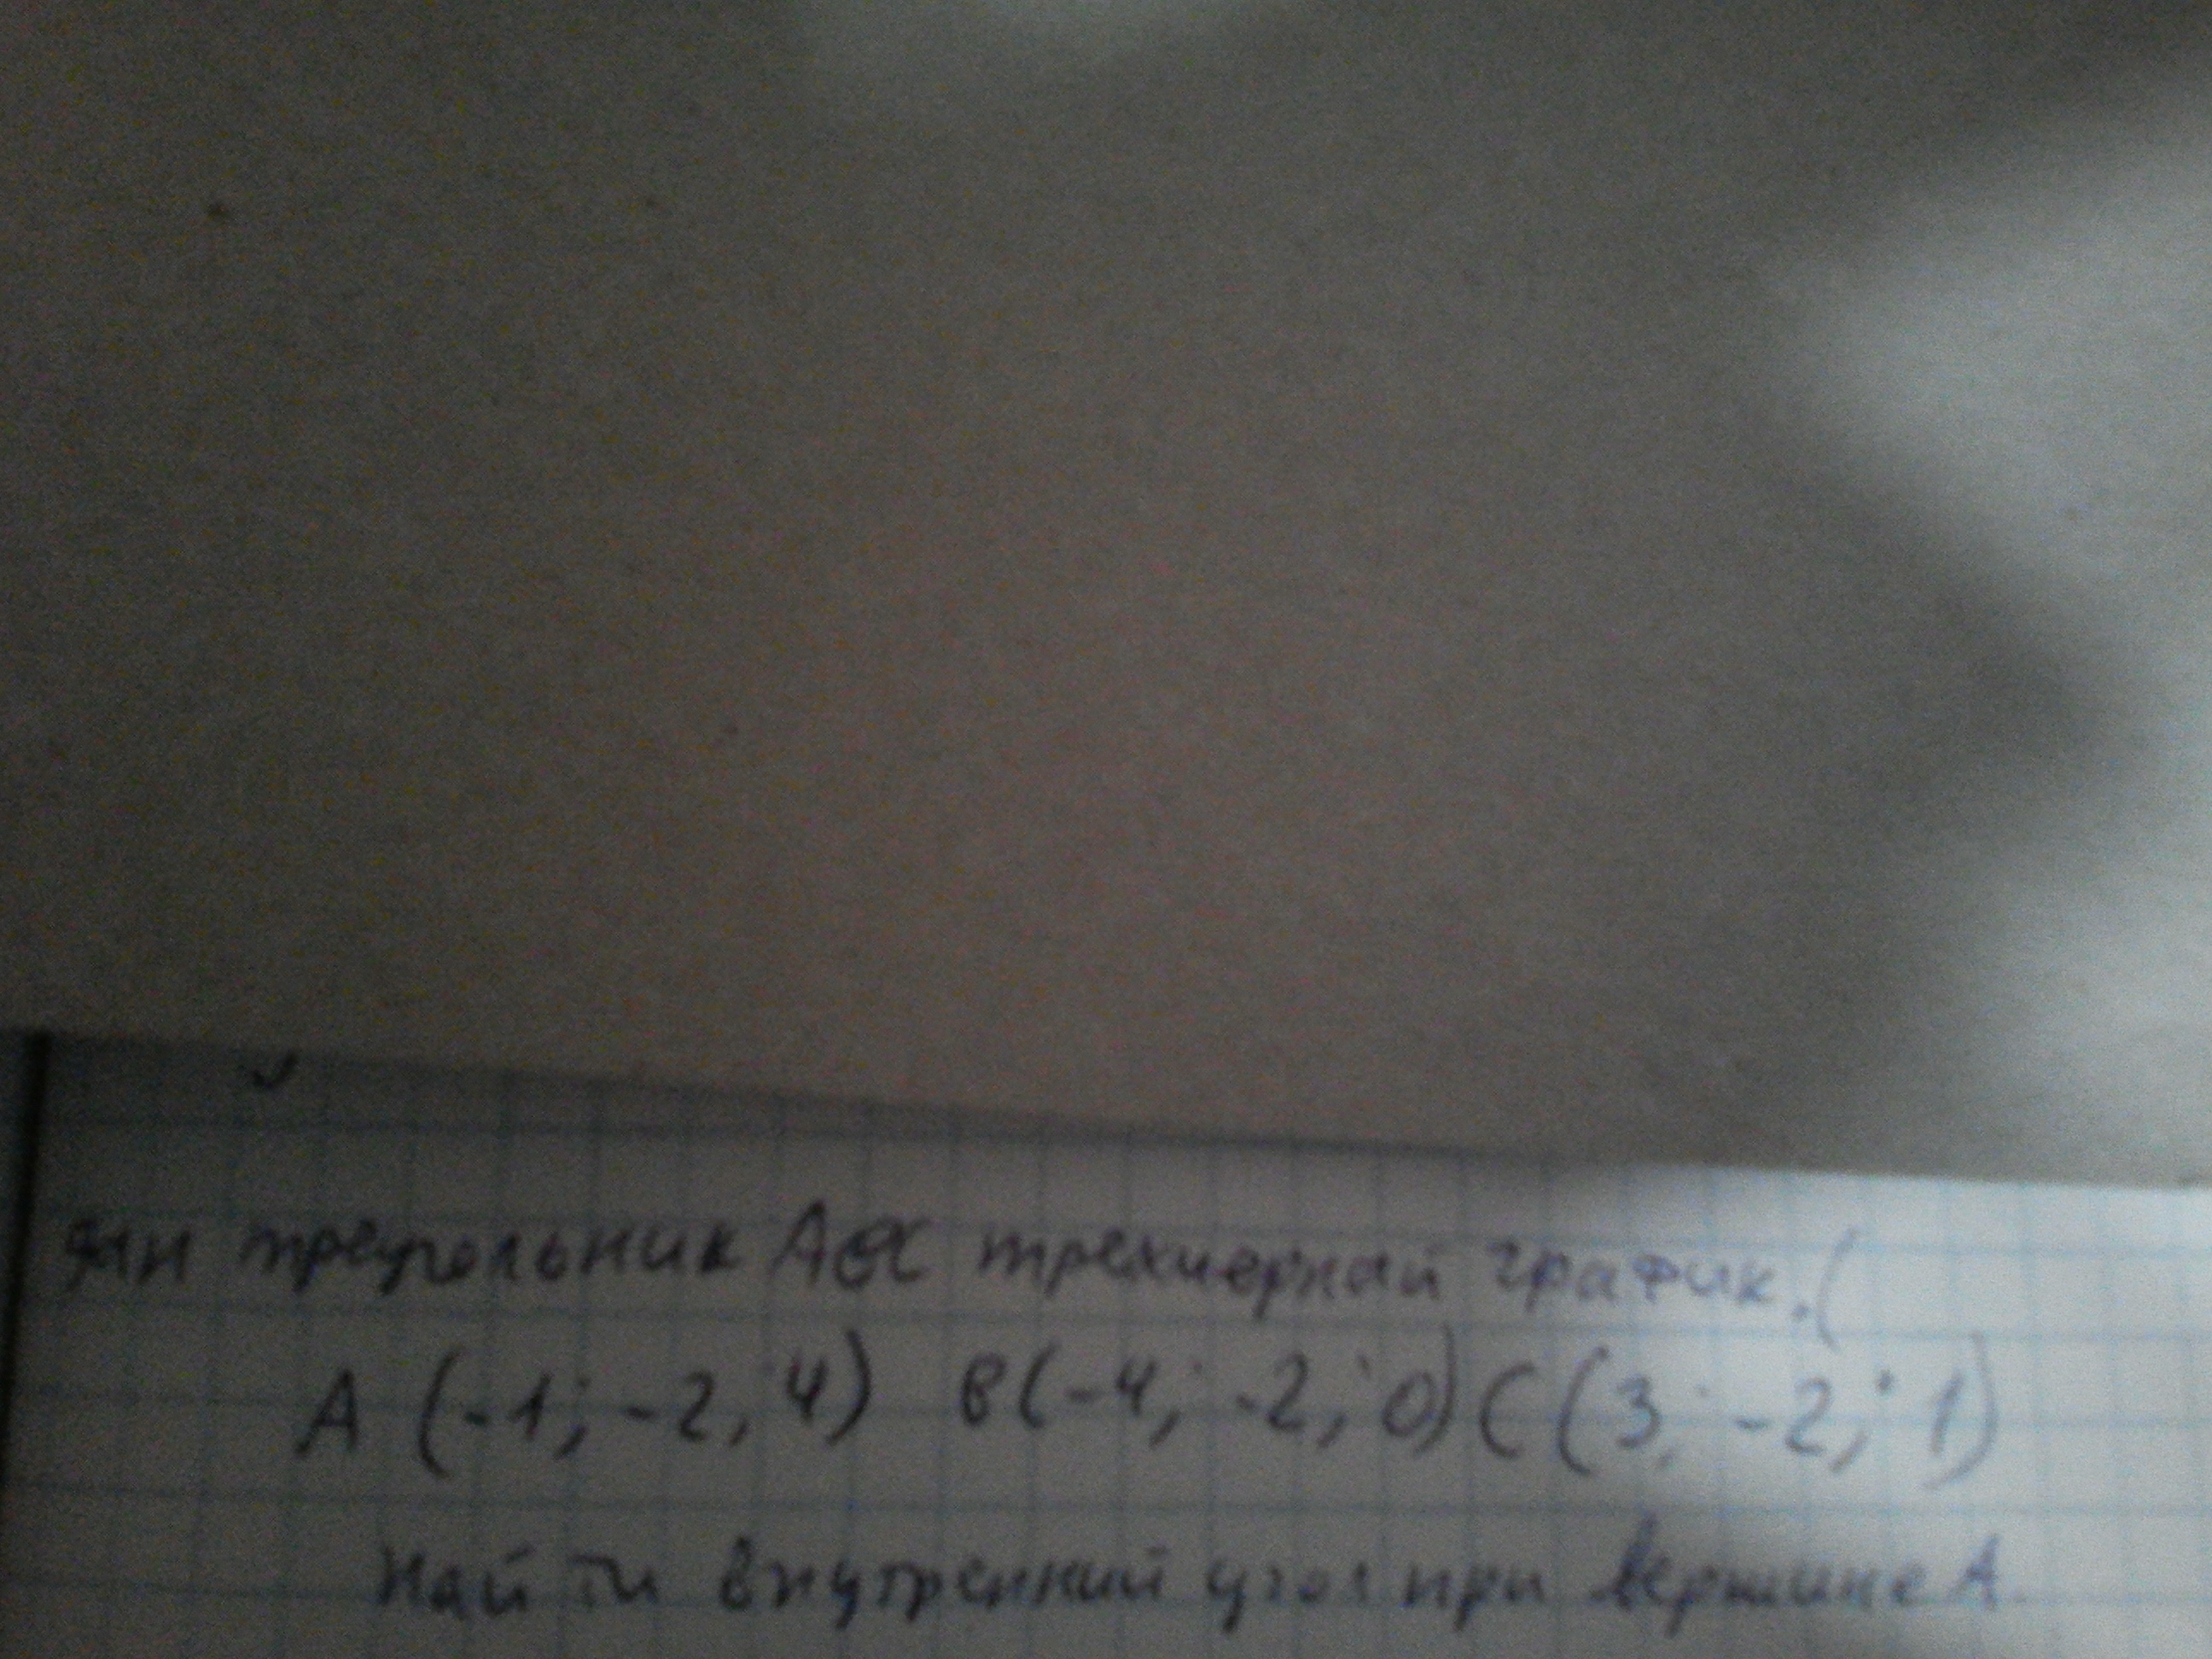 дан треугольник АВС трехмерный график. (
А (-1; -2, 4) В(-4; -2; 0) С (3; -2; 1)
Найти внутренний угол при вершине А.